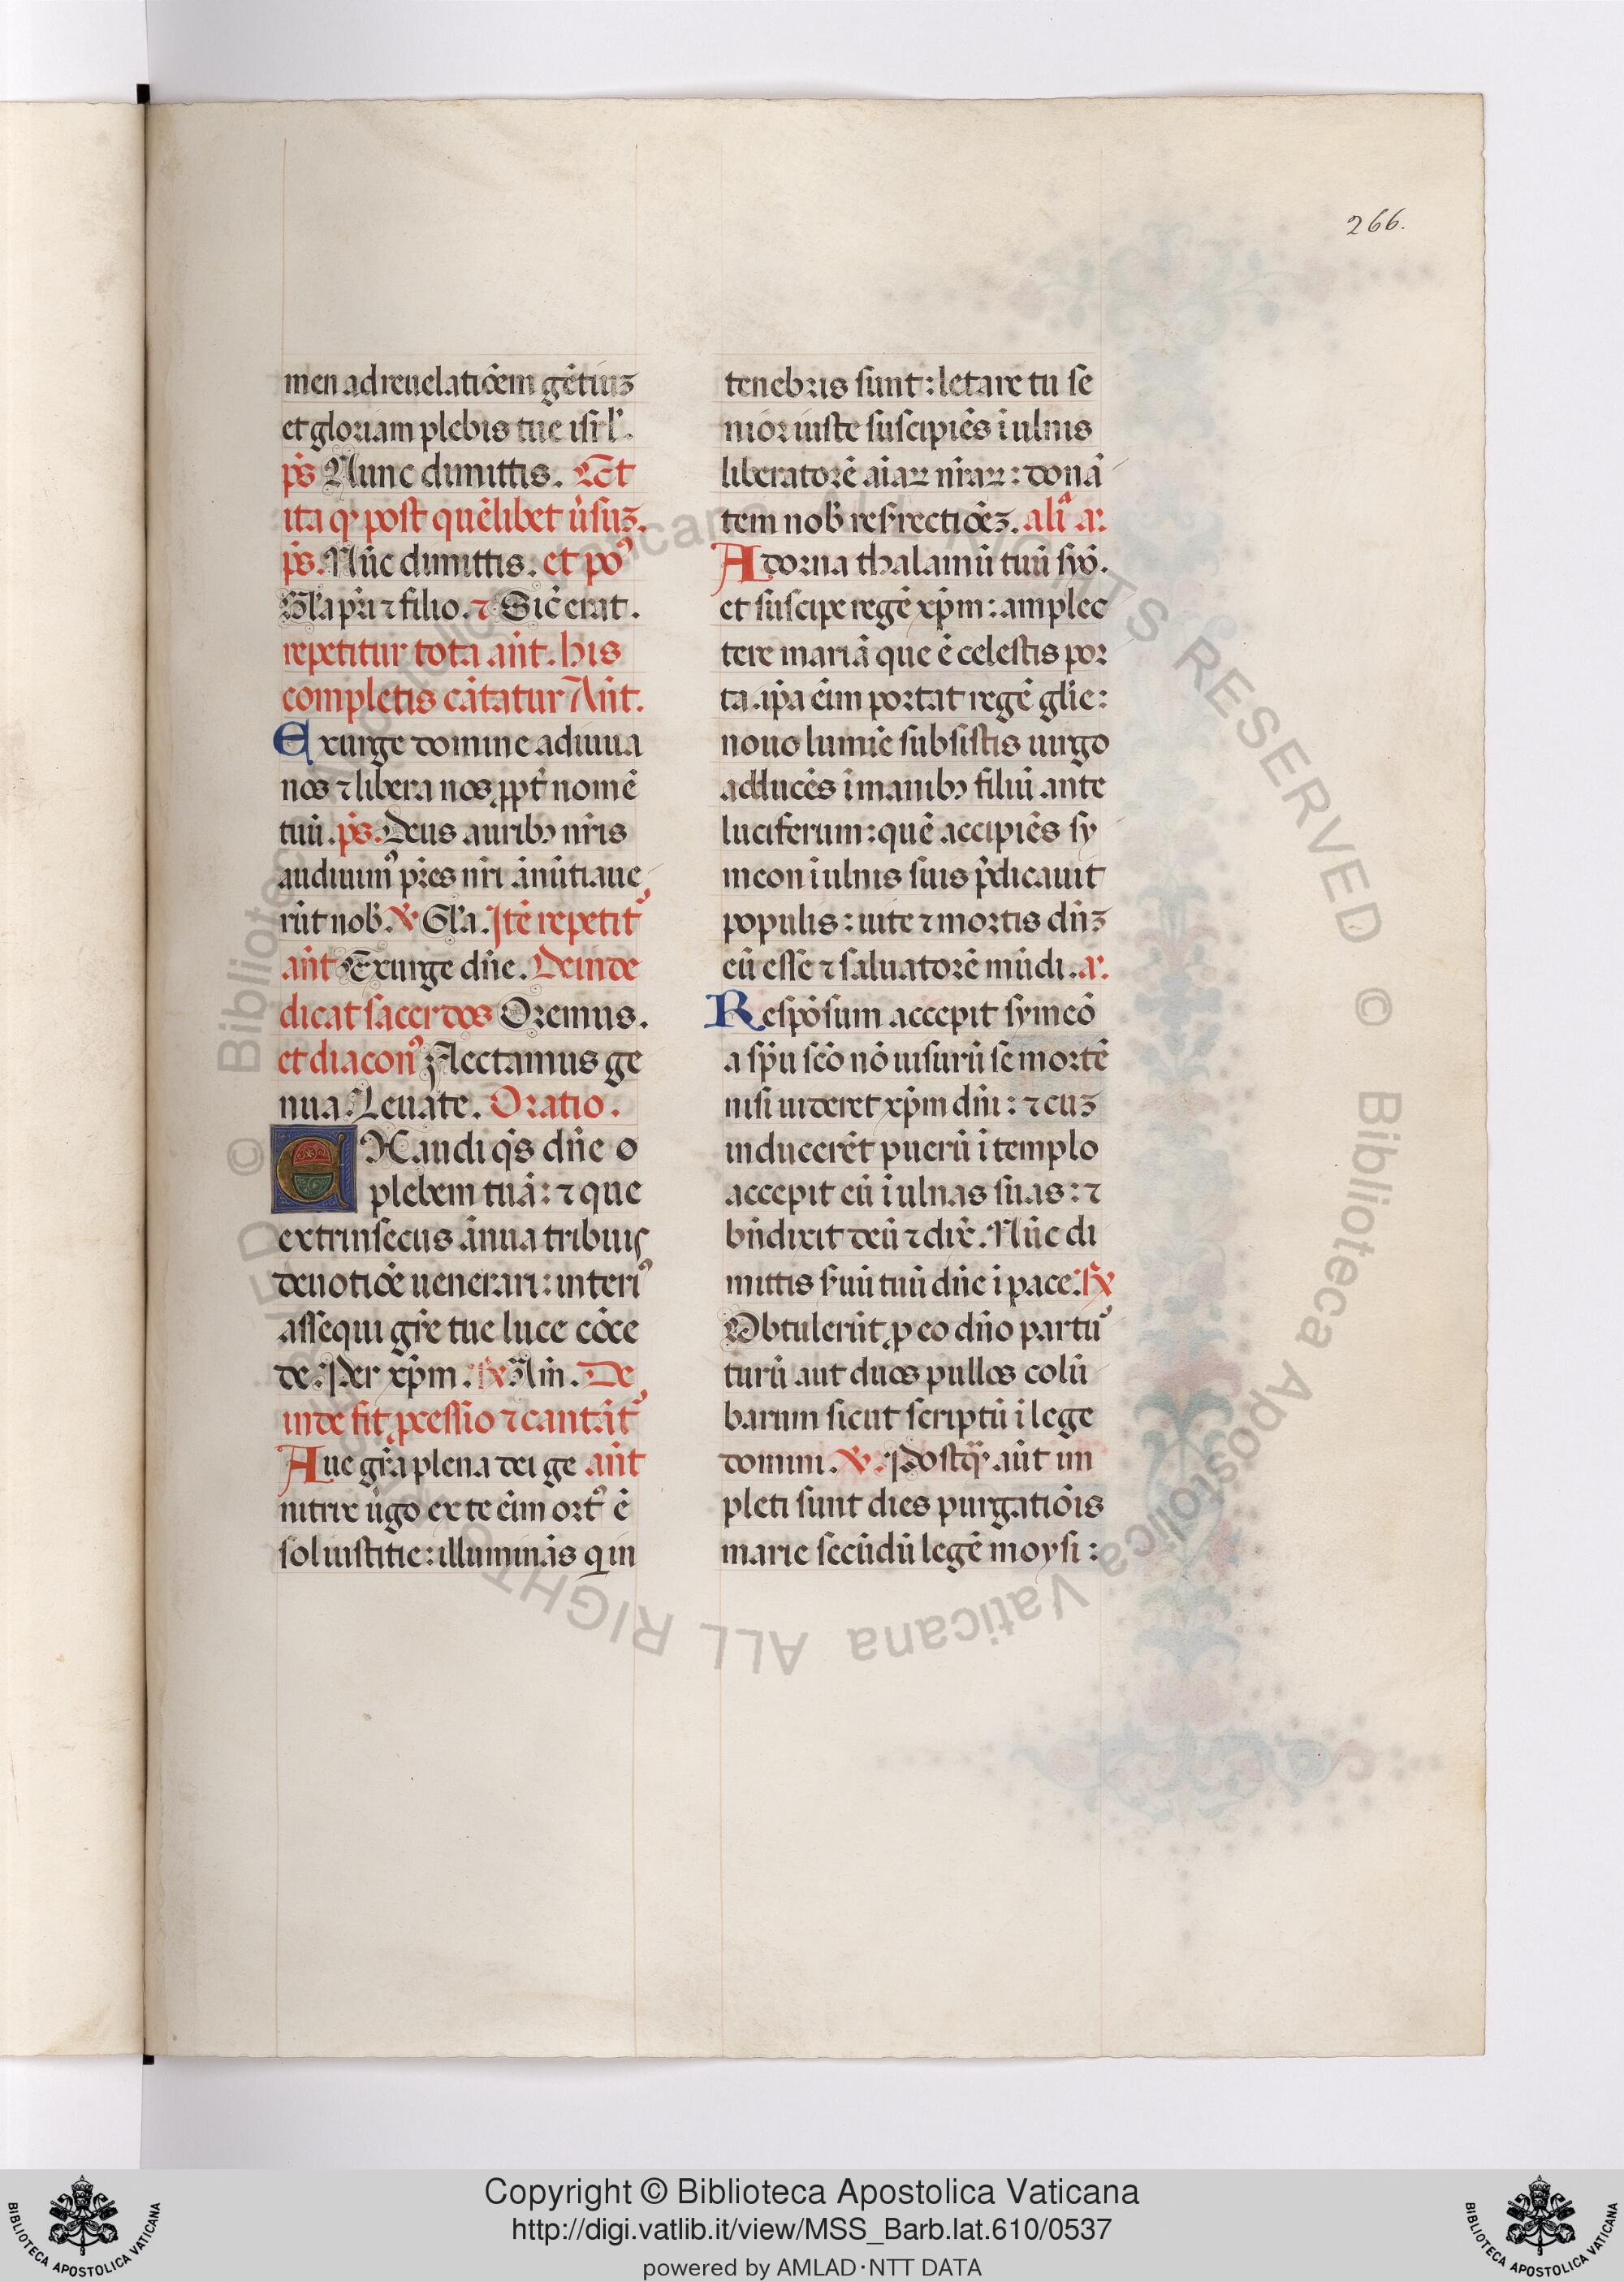 266.
men ad reuelatiõem gẽtiuʒ
et gloriam plebis tue isrl'.
ps̃ Nunc dimittis. Et
ita qꝫ post quẽlibet ủsuʒ.
ps̃. Nũc dimittis. et poꝰ
Gl'a pr̃i ⁊ filio. ⁊ Sic̃ erat.
repetitur tota añt. his
completis cãtatur Añt.
Exurge domine adiuua
nos ⁊ libera nos ꝓpt̃ nomẽ
tuũ. ps̃. Deus auribꝫ nr̃is
audiuimꝰ pr̃es nr̃i ãnũtiaue
rũt nob̃. ℣ Gl'a. Itẽ repetit᷑
añt Exurge dñe. Deinde
dicat sacerdos Oremus.
et diaconꝰ Flectamus ge
nua. Leuate. Oratio.
EXaudi q̃s dñe
plebem tuã: ⁊ que
extrinsecus ãnua tribuis
deuotiõe uenerari: interiꝰ
assequi gr̃e tue luce cõce
de. Per xp̃m. ℟ Am̃. De
inde fit ꝓcessio ⁊ cantãt᷑
Aue gr̃a plena dei ge añt
nitrix ủgo ex te eĩm ortꝰ ẽ
sol iustitie: illuminãs q̃ in
tenebris sunt: letare tu se
nior iuste suscipiẽs ĩ ulnis
liberatorẽ aĩaꝝ nr̃aꝝ: donã
tem nob̃ resrectiõeʒ. aliª a.
Adorna thalamũ tuũ syõ.
et suscipe regẽ xp̃m: amplec
tere mariã que ẽ celestis por
ta. ip̃a eĩm portat regẽ gl'ie:
nouo lumĩe subsistis uirgo
adducẽs ĩ manibꝫ filiũ ante
luciferum: quẽ accipiẽs sy
meon ĩ ulnis suis p̃dicauit
populis: uite ⁊ mortis dñʒ
eũ esse ⁊ saluatorẽ mũdi. a.
Respõsum accepit symeõ
a sp̃u sc̃o nõ uisurũ se mortẽ
nisi uideret xp̃m dñi: ⁊ cuʒ
inducerẽt puerũ ĩ templo
accepit eũ ĩ ulnas suas: ⁊
bñdixit deũ ⁊ dix̃. Nũc di
mittis s̃uũ tuũ dñe ĩ pace. ℟
Obtulerũt ꝓ eo dño par tuꝰ
turũ aut duos pullos colũ
barum sicut scriptũ ĩ lege
domini. ℣. Postqꝫ aũt im
pleti sunt dies purgatiõis
marie secũdũ legẽ moysi:
Copyright © Biblioteca Apostolica Vaticana
http://digi.vatlib.it/view/MSS_Barb.lat.610/0537
powered by AMLAD·NTT DATA
BIBLIOTECA APOSTOLICA VATICANA
BIBLIOTECA APOSTOLICA VATICANA
© Biblioteca Apostolica Vaticana ALL RIGHTS RESERVED © Biblioteca Apostolica Vaticana ALL RIGHTS RESERVED